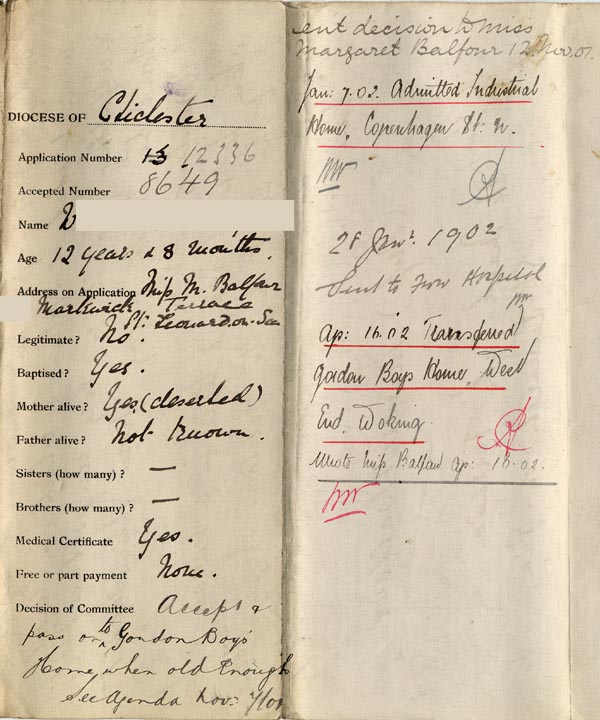 DIOCESE OF Chichester
Application Number 13 12336
Accepted Number 8649
Name W
Age 12 years & 8 months.
Address on Application Miss M. Balfour
Markwick Terrace
St: Leonards on-Sea
Legitimate? No.
Baptised? Yes.
Mother alive? Yes (deserted)
Father alive? Not known.
Sisters (how many)? —
Brothers (how many)? —
Medical Certificate Yes.
Free or part payment None.
Decision of Committee Accept &
pass on to Gordon Boys'
Home, when old enough
See Agenda Nov: 7/01
ent decision to Miss
Margaret Balfour 12. Nov. 01.
Jan: 7.02. Admitted Industrial
Home, Copenhagen St: N.
28 Jan: 1902
Sent to Fever Hospital
Ap: 16.02 Transferred
Gordon Boys Home, West
End, Woking.
Wrote Miss Balfour Ap: 16.02.